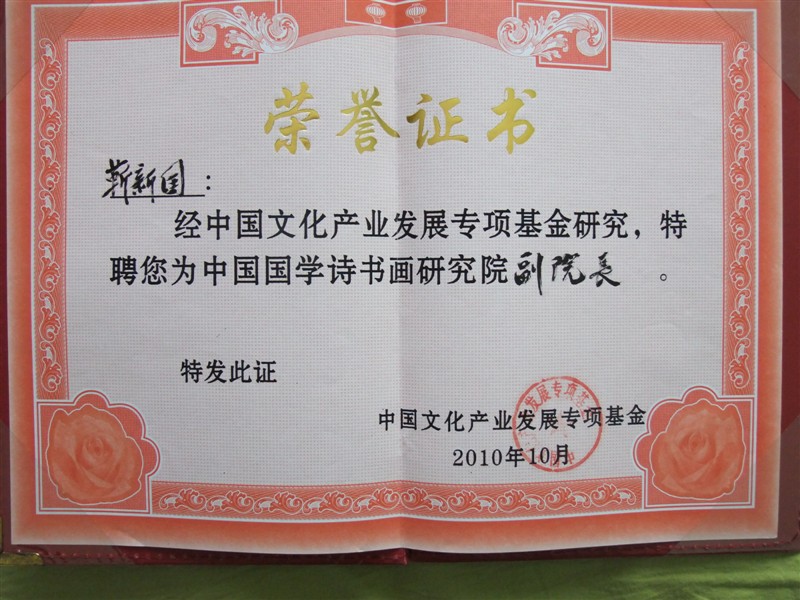 荣誉证书
靳新国：
经中国文化产业发展专项基金研究，特
聘您为中国国学诗书画研究院副院长 。
特发此证
中国文化产业发展专项基金
2010年10月